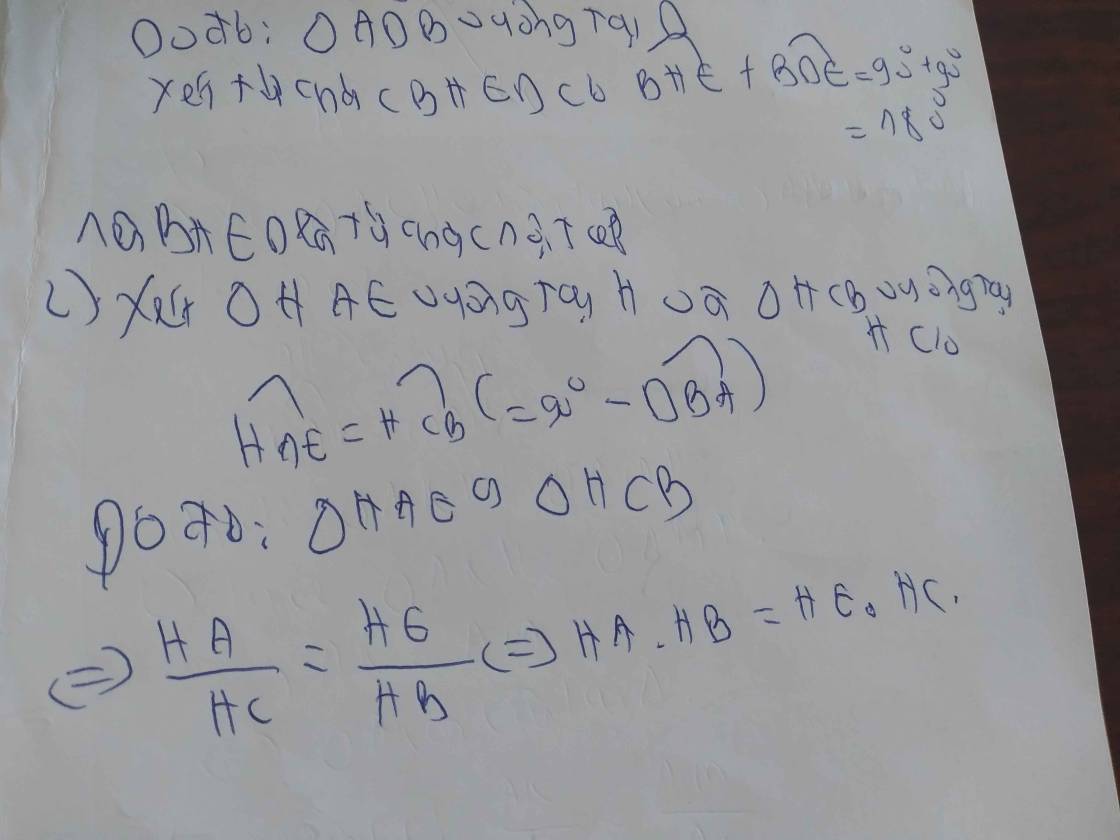 Do đó: Δ ADB vuông tại D
Xét tứ giác BHED có BHE + BDE = 90° + 90°
= 180°
nên BHED là tứ giác nội tiếp
2) Xét Δ HAE vuông tại H và Δ HCB vuông tại
H có
HAE = HCB (= 90° - DBA)
Do đó: Δ HAE ∽ Δ HCB
⇔ HA/HC = HE/HB ⇔ HA . HB = HE . HC .